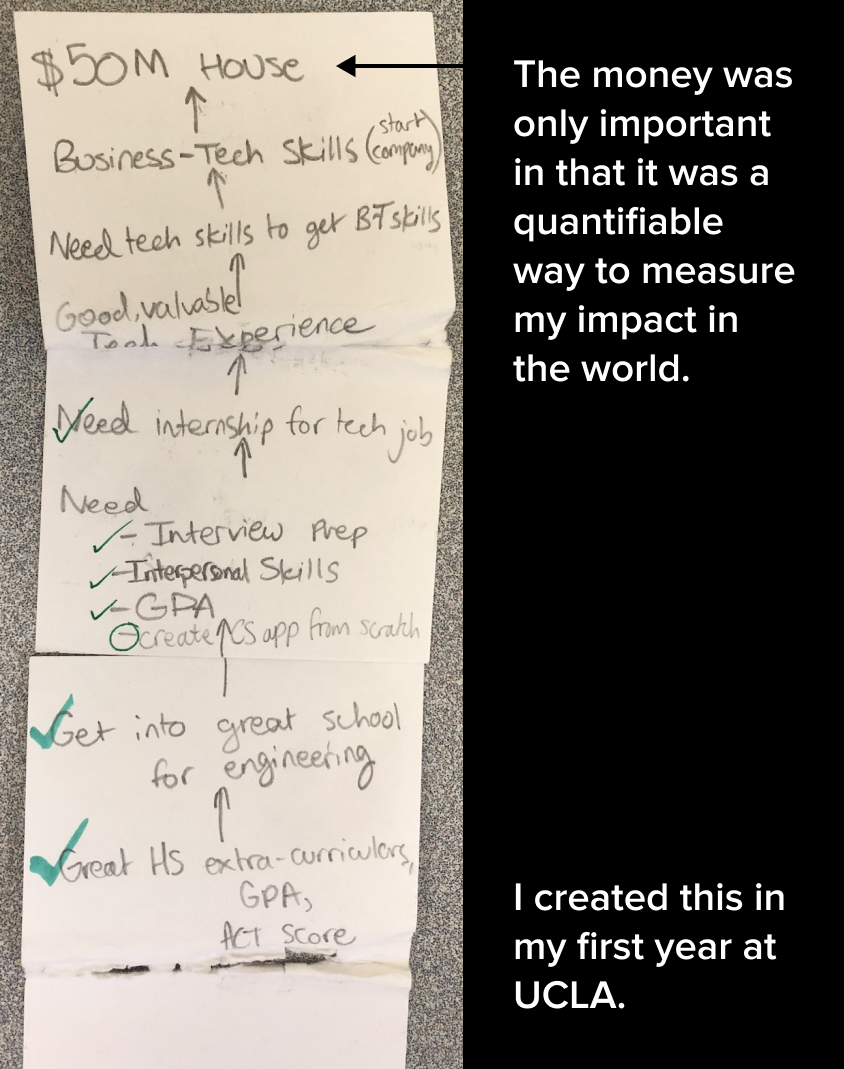 $50M HOUSE
Business-Tech Skills (start company)
Need tech skills to get BT skills
Good, valuable
Tech Experience
Need internship for tech job
Need
- Interview Prep
- Interpersonal Skills
- GPA
- create CS app from scratch
Get into great school
for engineering
Great HS extra-curriculars,
GPA,
ACT Score
The money was
only important
in that it was a
quantifiable
way to measure
my impact in
the world.
I created this in
my first year at
UCLA.